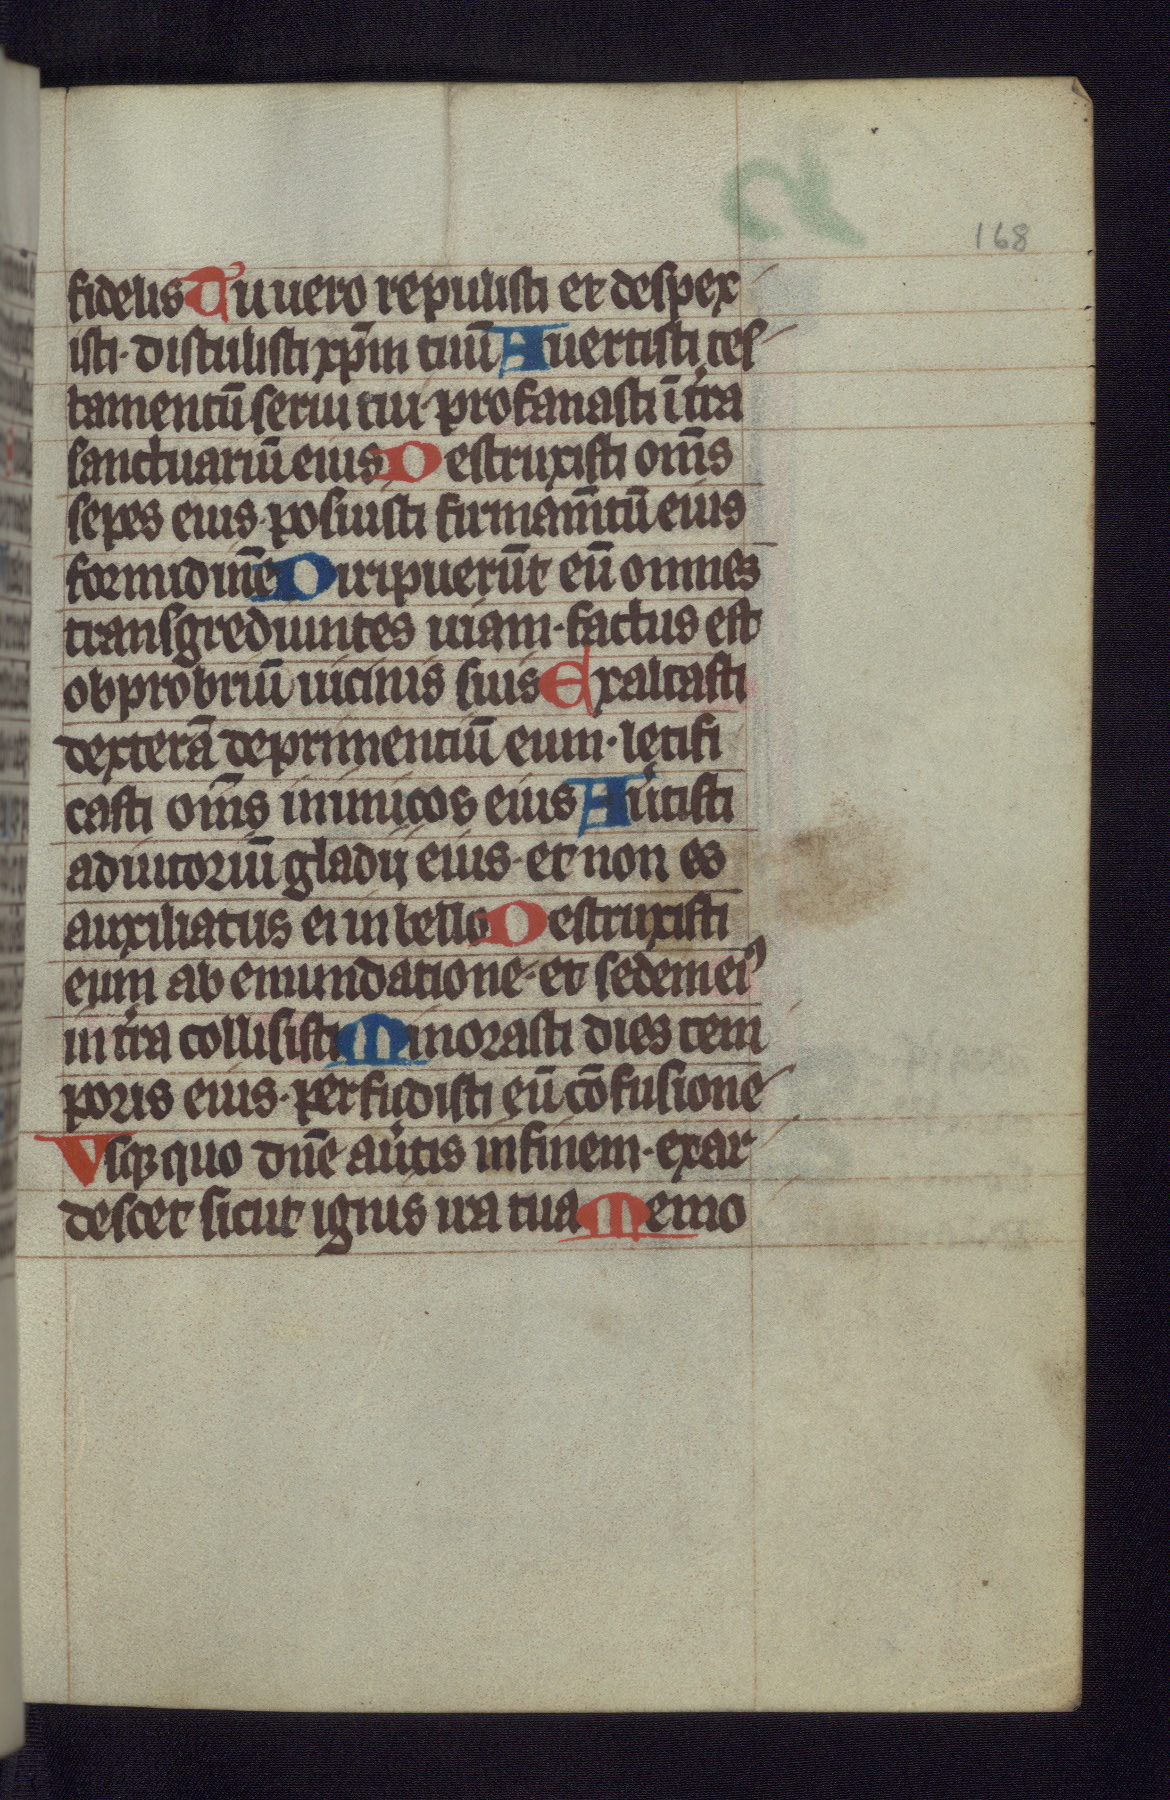 168
fidelis Tu uero repulisti et despex
isti· distulisti xp̄m tuū Auertisti tes
tamentū serui tui· profanasti ī tr̄a
sanctuariū eius Destruxisti om̄s
sepes eius· posuisti firmam̄tū eius
formidinē Diripuerūt eū omnes
transgredientes uiam· factus est
obprobriū uicinis suis Exaltasti
dexterā deprimentiū eum· letifi
casti om̄s inimicos eius Au̾tisti
adiutoriū gladij eius· et non es
auxiliatus ei in bello Destruxisti
eum ab emundatione· et sedem eiꝰ
in tr̄a collisisti Minorasti dies tem
poris eius· perfudisti eū cōfusione
Vsqꝫ quo dn̄e au̾tis in finem· exar
descet sicut ignis ira tua Memo